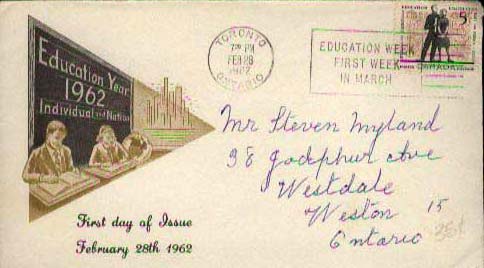 Education Year
1962
Individual and Nation
First day of Issue
February 28th 1962
TORONTO
PM
FEB 28
1962
ONTARIO
EDUCATION WEEK
FIRST WEEK
IN MARCH
EDUCATION EDUCATION
5
CANADA
Mr Steven Myland
98 Ave
Westdale
Weston 15
Ontario
25¢